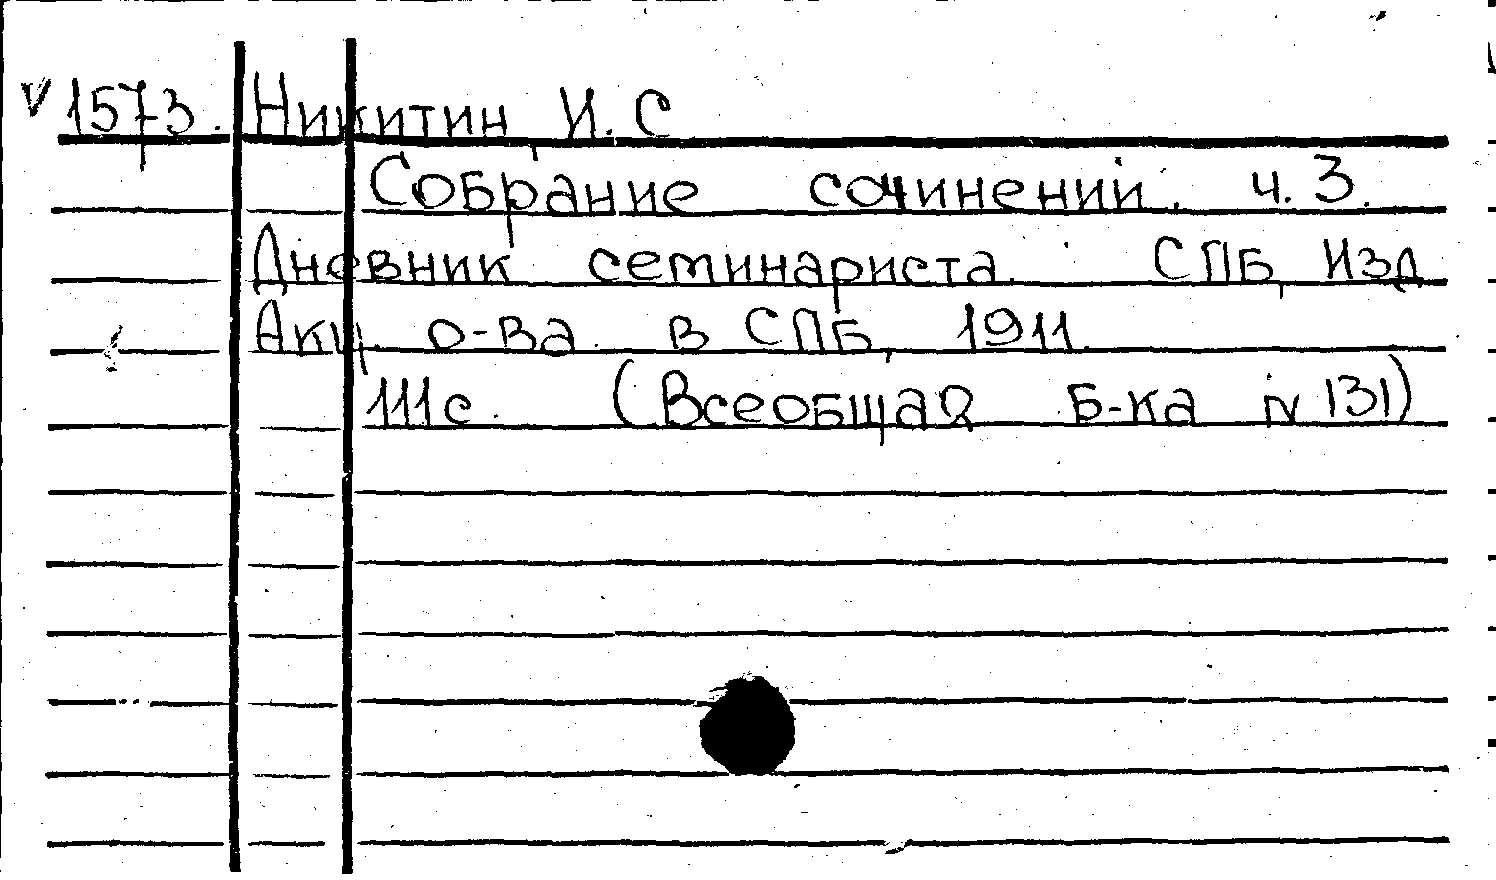 V 1573. Никитин, И. С
Собрание сочинений. ч. 3.
Дневник семинариста. СПБ, Изд
Акц. о-ва в СПБ, 1911.
111с. (Всеобщая Б-ка N 131)